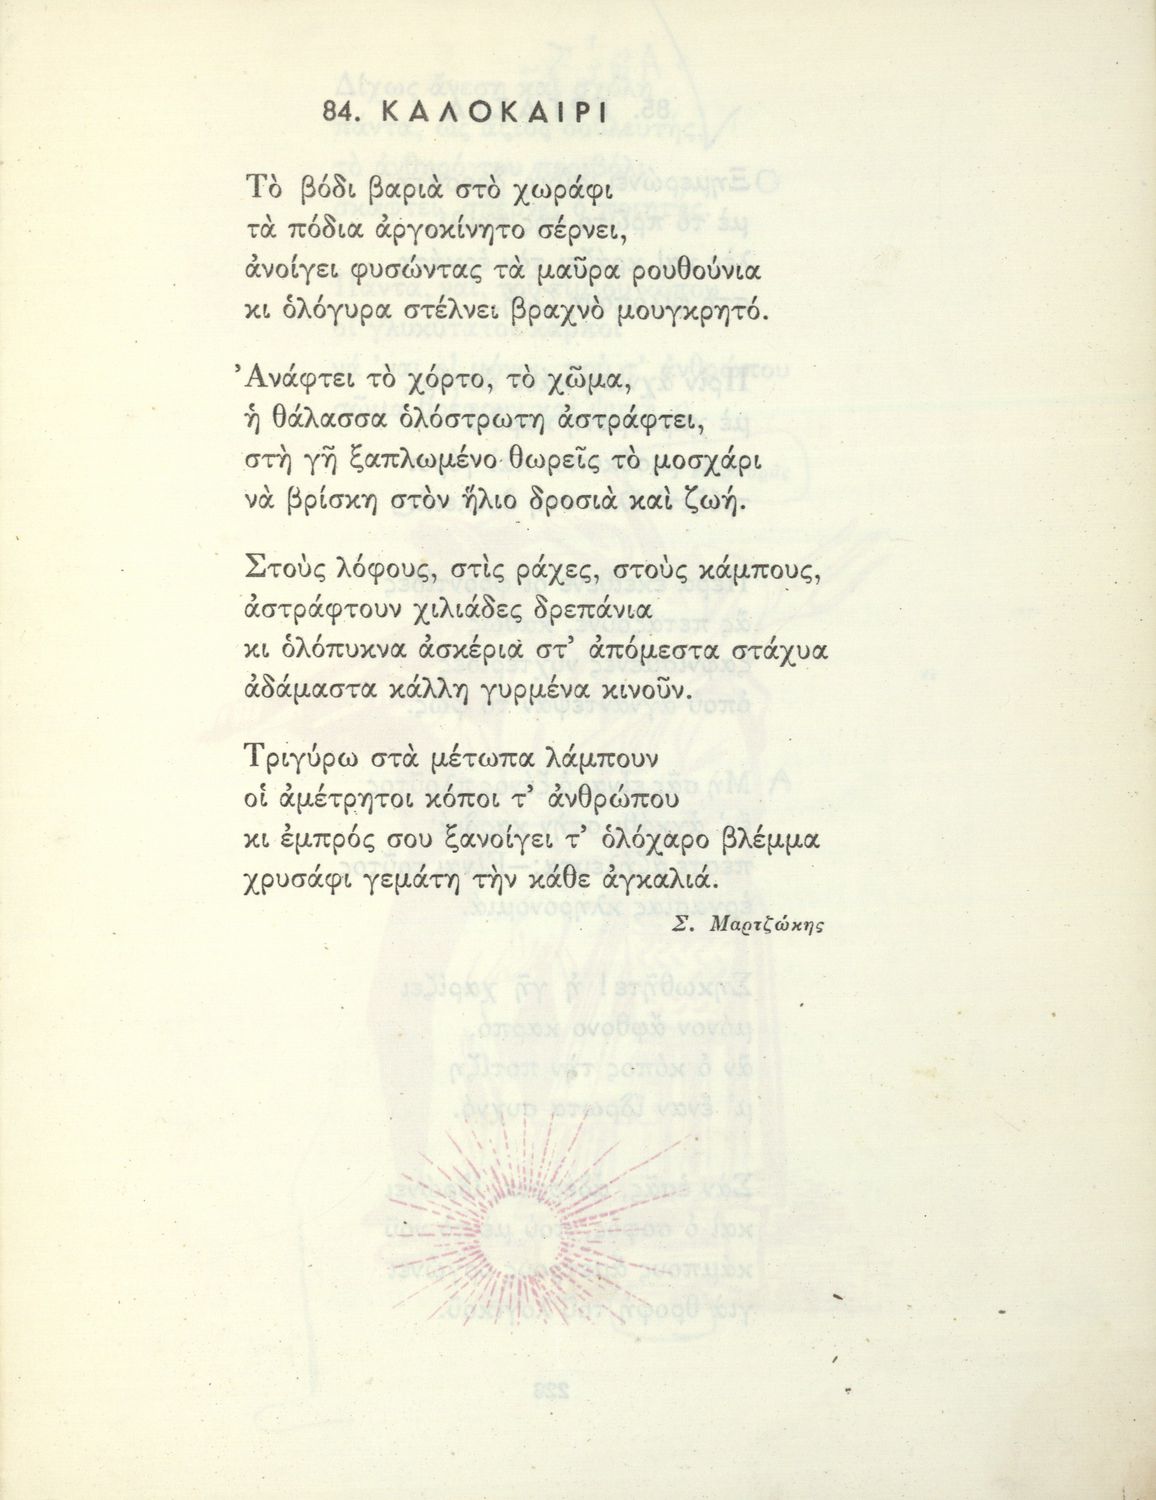 84. ΚΑΛΟΚΑΙΡΙ
Τὸ βόδι βαριὰ στὸ χωράφι
τὰ πόδια ἀργοκίνητο σέρνει,
ἀνοίγει φυσώντας τὰ μαῦρα ρουθούνια
κι ὁλόγυρα στέλνει βραχνὸ μουγκρητό.
Ἀνάφτει τὸ χόρτο, τὸ χῶμα,
ἡ θάλασσα ὁλόστρωτη ἀστράφτει,
στὴ γῆ ξαπλωμένο θωρεῖς τὸ μοσχάρι
νὰ βρίσκη στὸν ἥλιο δροσιὰ καὶ ζωή.
Στοὺς λόφους, στὶς ράχες, στοὺς κάμπους,
ἀστράφτουν χιλιάδες δρεπάνια
κι ὁλόπυκνα ἀσκέρια στ' ἀπόμεστα στάχυα
ἀδάμαστα κάλλη γυρμένα κινοῦν.
Τριγύρω στὰ μέτωπα λάμπουν
οἱ ἀμέτρητοι κόποι τ' ἀνθρώπου
κι ἐμπρός σου ξανοίγει τ' ὁλόχαρο βλέμμα
χρυσάφι γεμάτη τὴν κάθε ἀγκαλιά.
Σ. Μαρτζώκης